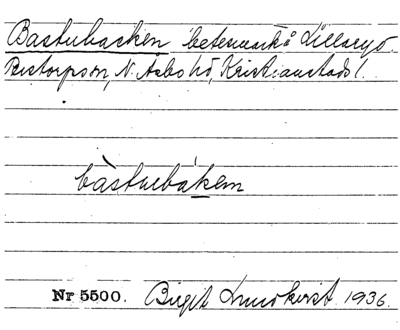 Bastubacken betesmark å Lillaryd.
Perstorps sn, N. Åsbo hd, Kristianstads l.
bàstubákem
Nr 5500. Birgit Lundkvist 1936.